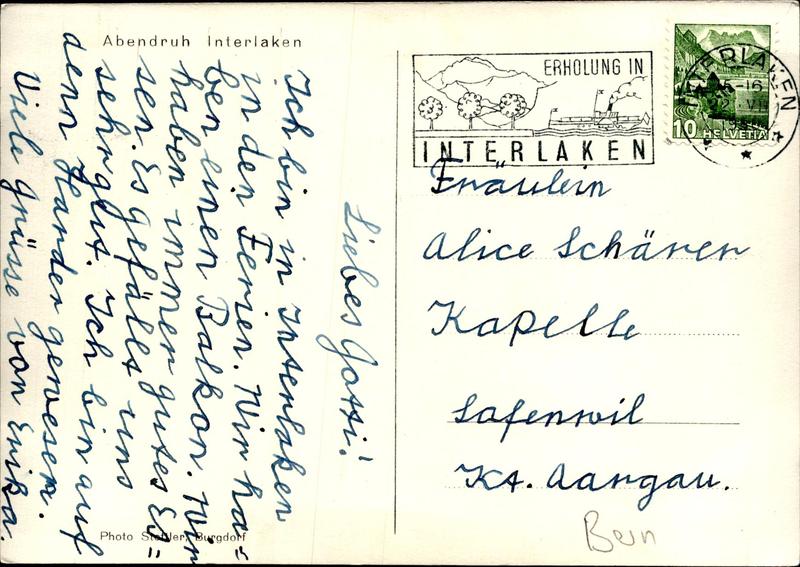 Abendruh Interlaken
Liebes Gotti!
Ich bin in Interlaken
in den Ferien. Wir ha=
ben einen Balkon. Wir
haben immer gutes Es=
sen. Es gefällt uns
sehr gut. Ich bin auf
denn Harder gewesen.
Viele Grüsse von Erika.
Photo Stettler, Burgdorf
ERHOLUNG IN
INTERLAKEN
INTERLAKEN
10 HELVETIA
Fräulein
Alice Schärer
Kapelle
Safenwil
Kt. Aargau.
Bern